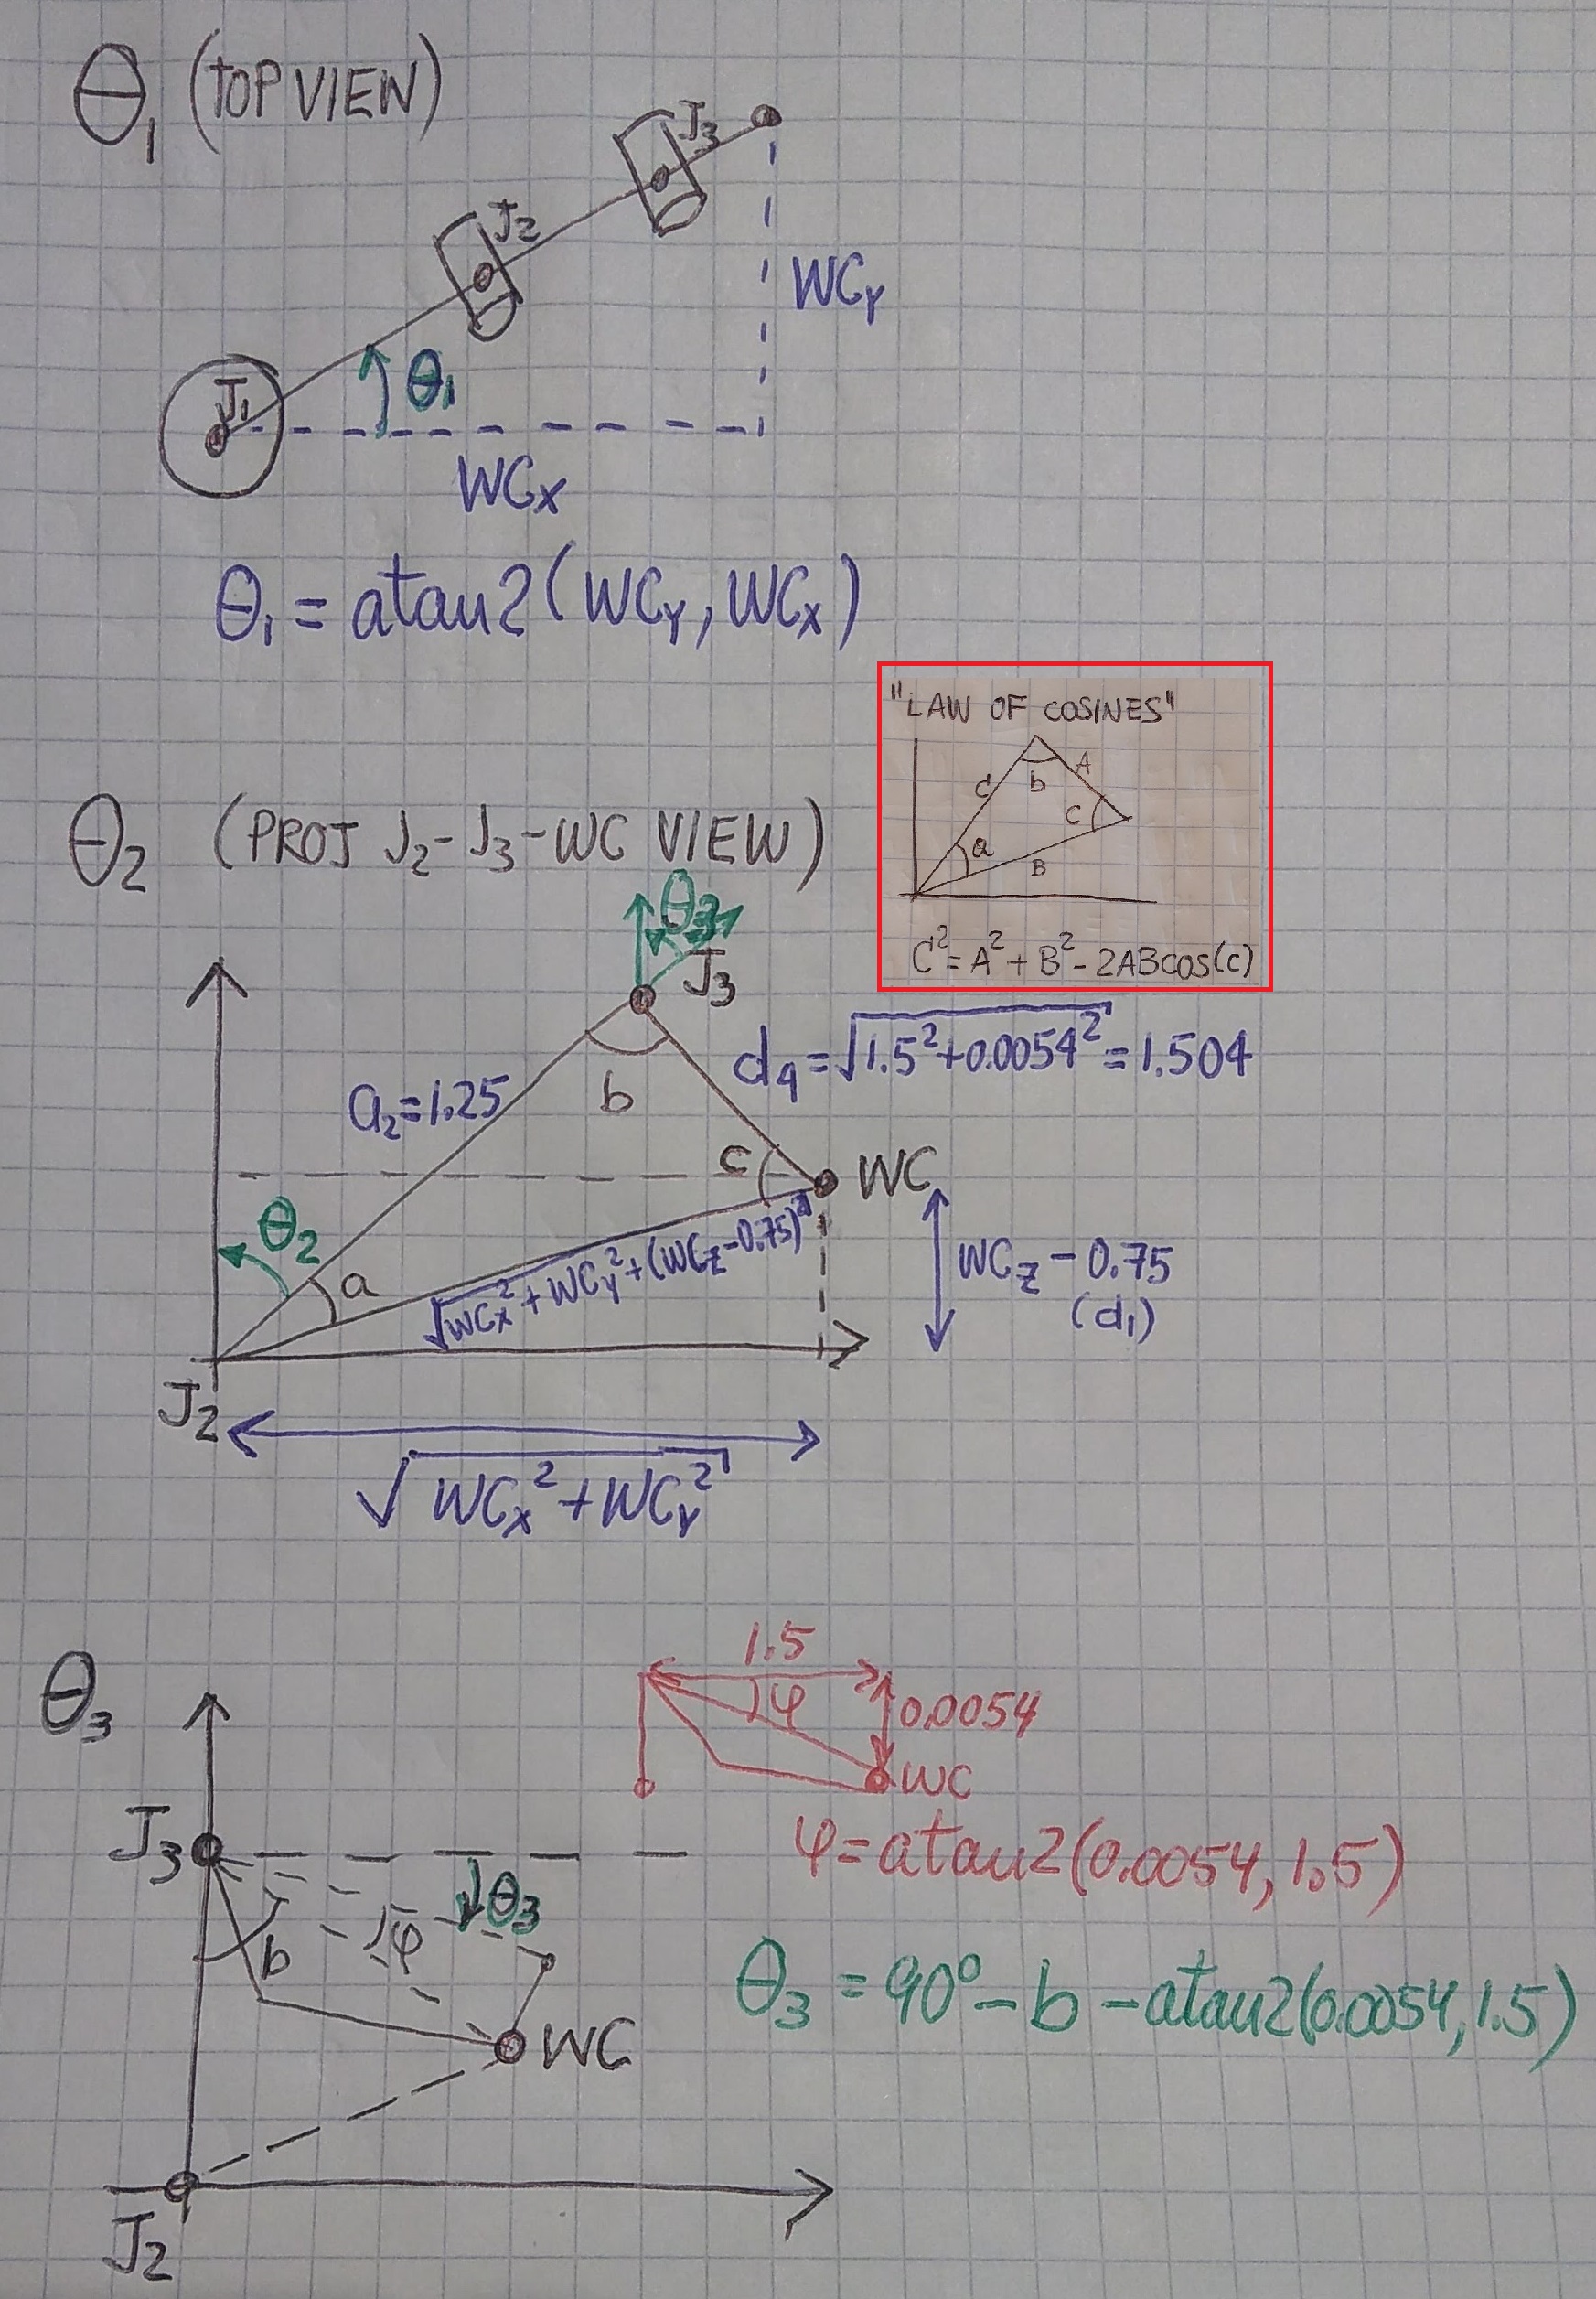 θ₁ (TOP VIEW)
J₃
J₂
WCY
θ₁
J₁
WCX
θ₁ = atan2(WCY, WCX)
"LAW OF COSINES"
A
C
b
c
a
B
C² = A² + B² - 2ABcos(c)
θ₂ (PROJ J₂-J₃-WC VIEW)
θ₃
J₃
d₄ = √1.5²+0.0054² = 1.504
a₂=1.25
b
c
WC
θ₂
a
√WCX²+WCY²+(WCZ-0.75)²
WCZ - 0.75
(d₁)
J₂
√WCX²+WCY²
θ₃
1.5
φ
0.0054
WC
J₃
φ=atan2(0.0054, 1.5)
θ₃
φ
b
θ₃ = 90° - b - atan2(0.0054, 1.5)
WC
J₂